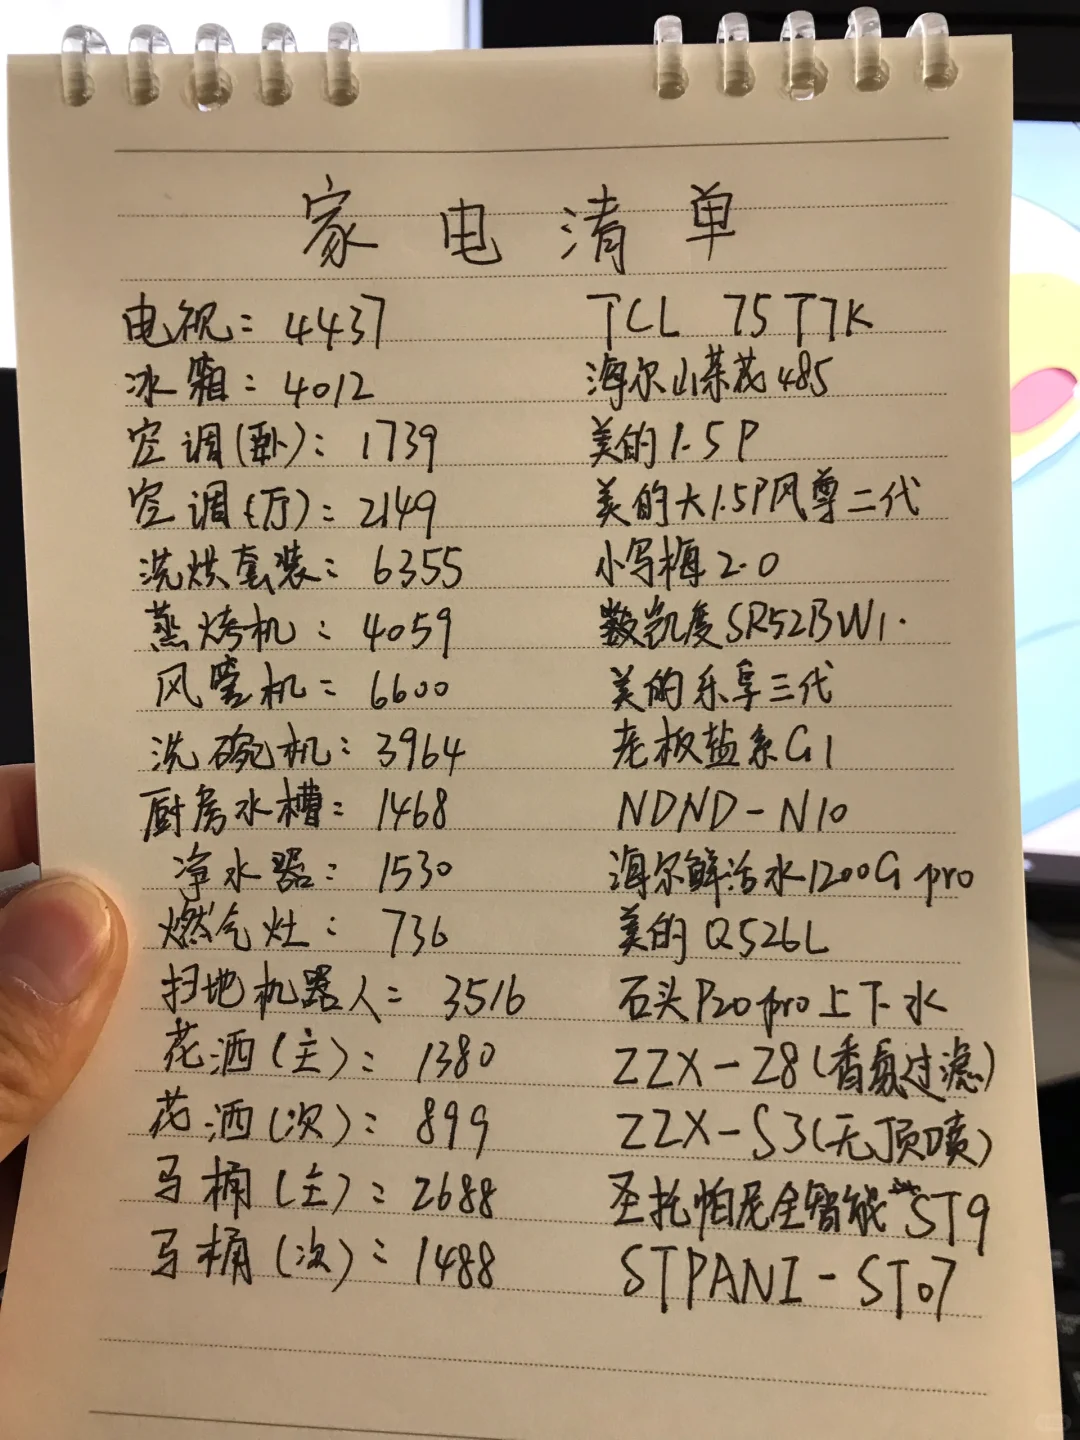 家电清单
电视：4437 TCL 75T7K
冰箱：4012 海尔山茶花485
空调(卧)：1739 美的1.5P
空调(厅)：2149 美的大1.5P风尊二代
洗烘套装：6355 小写梅2.0
蒸烤机：4059 凯度SR52BW1.
风暖机：6600 美的乐享三代
洗碗机：3964 老板盐系G1
厨房水槽：1468 NDND-N10
净水器：1530 海尔鲜活水1200G pro
燃气灶：736 美的Q526L
扫地机器人：3516 石头P20pro上下水
花洒(主)：1380 ZZX-Z8(香氛过滤)
花洒(次)：899 ZZX-S3(无顶喷)
马桶(主)：2688 圣托帕尼全智能ST9
马桶(次)：1488 STPANI-ST07